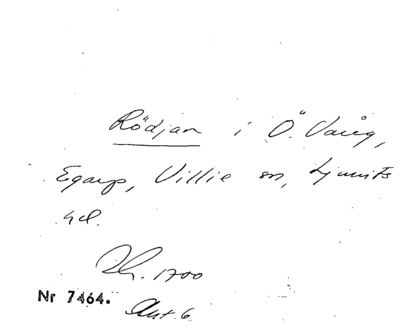 Rödjan i Ö. Vång,
Egarp, Villie sn, Ljunits
hd.
1700
Nr 7464.
Akt. 6